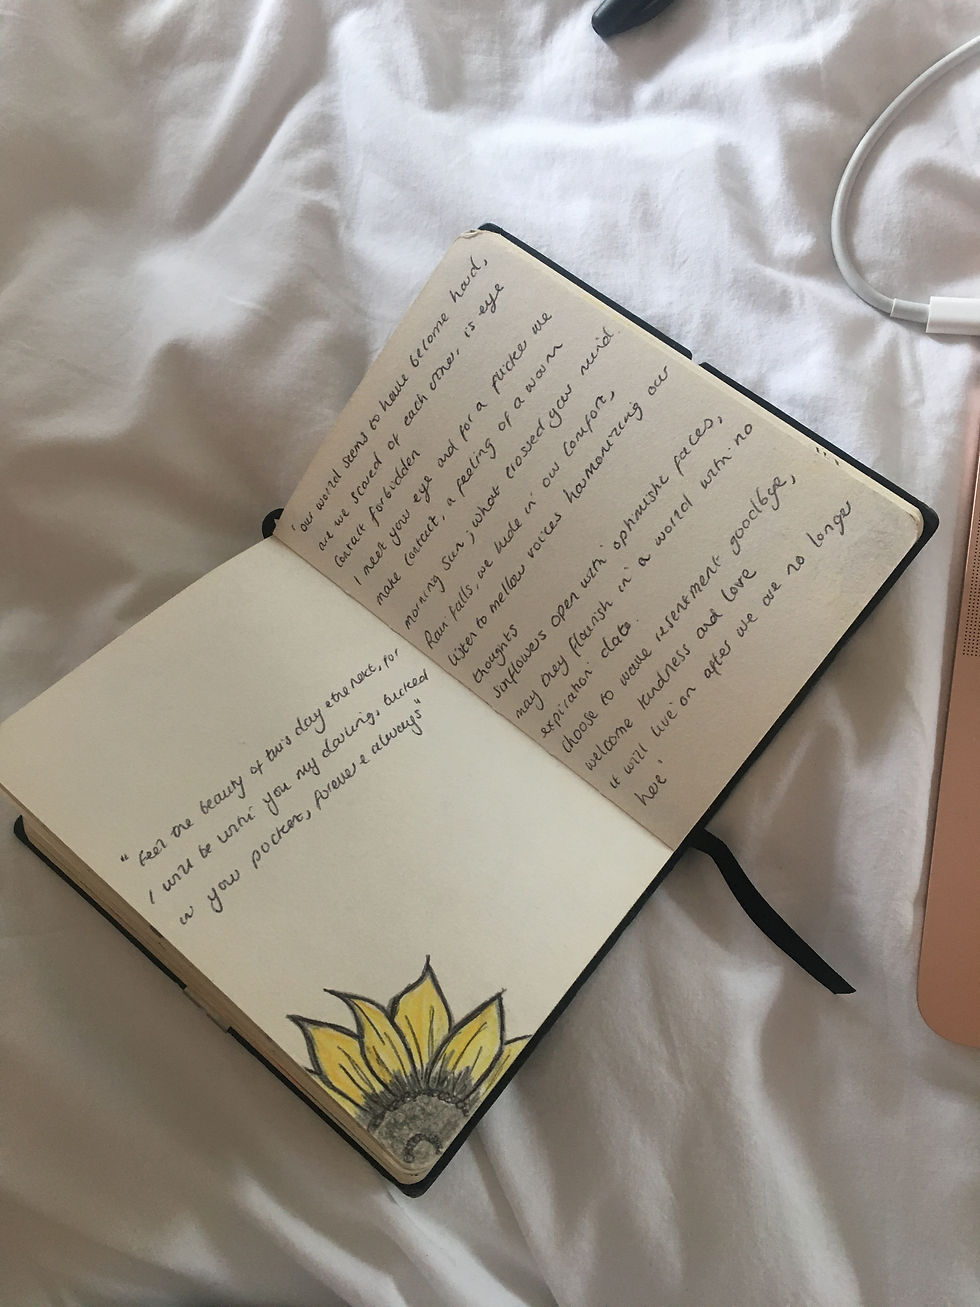 "Feel the beauty of this day & the next, for
I will be with you my darling, tucked
in your pocket, forever & always"
'our world seems to have become hard,
are we scared of each other, is eye
contact forbidden
I meet your eye and for a flicker we
make contact, a feeling of a warm
morning sun; what crossed your mind.
Rain falls, we hide in our comfort,
listen to mellow voices harmonizing our
thoughts
sunflowers open with optimistic faces,
may they flourish in a world with no
expiration date.
choose to wave resentment goodbye,
welcome kindness and love
it will live on after we are no longer
here'